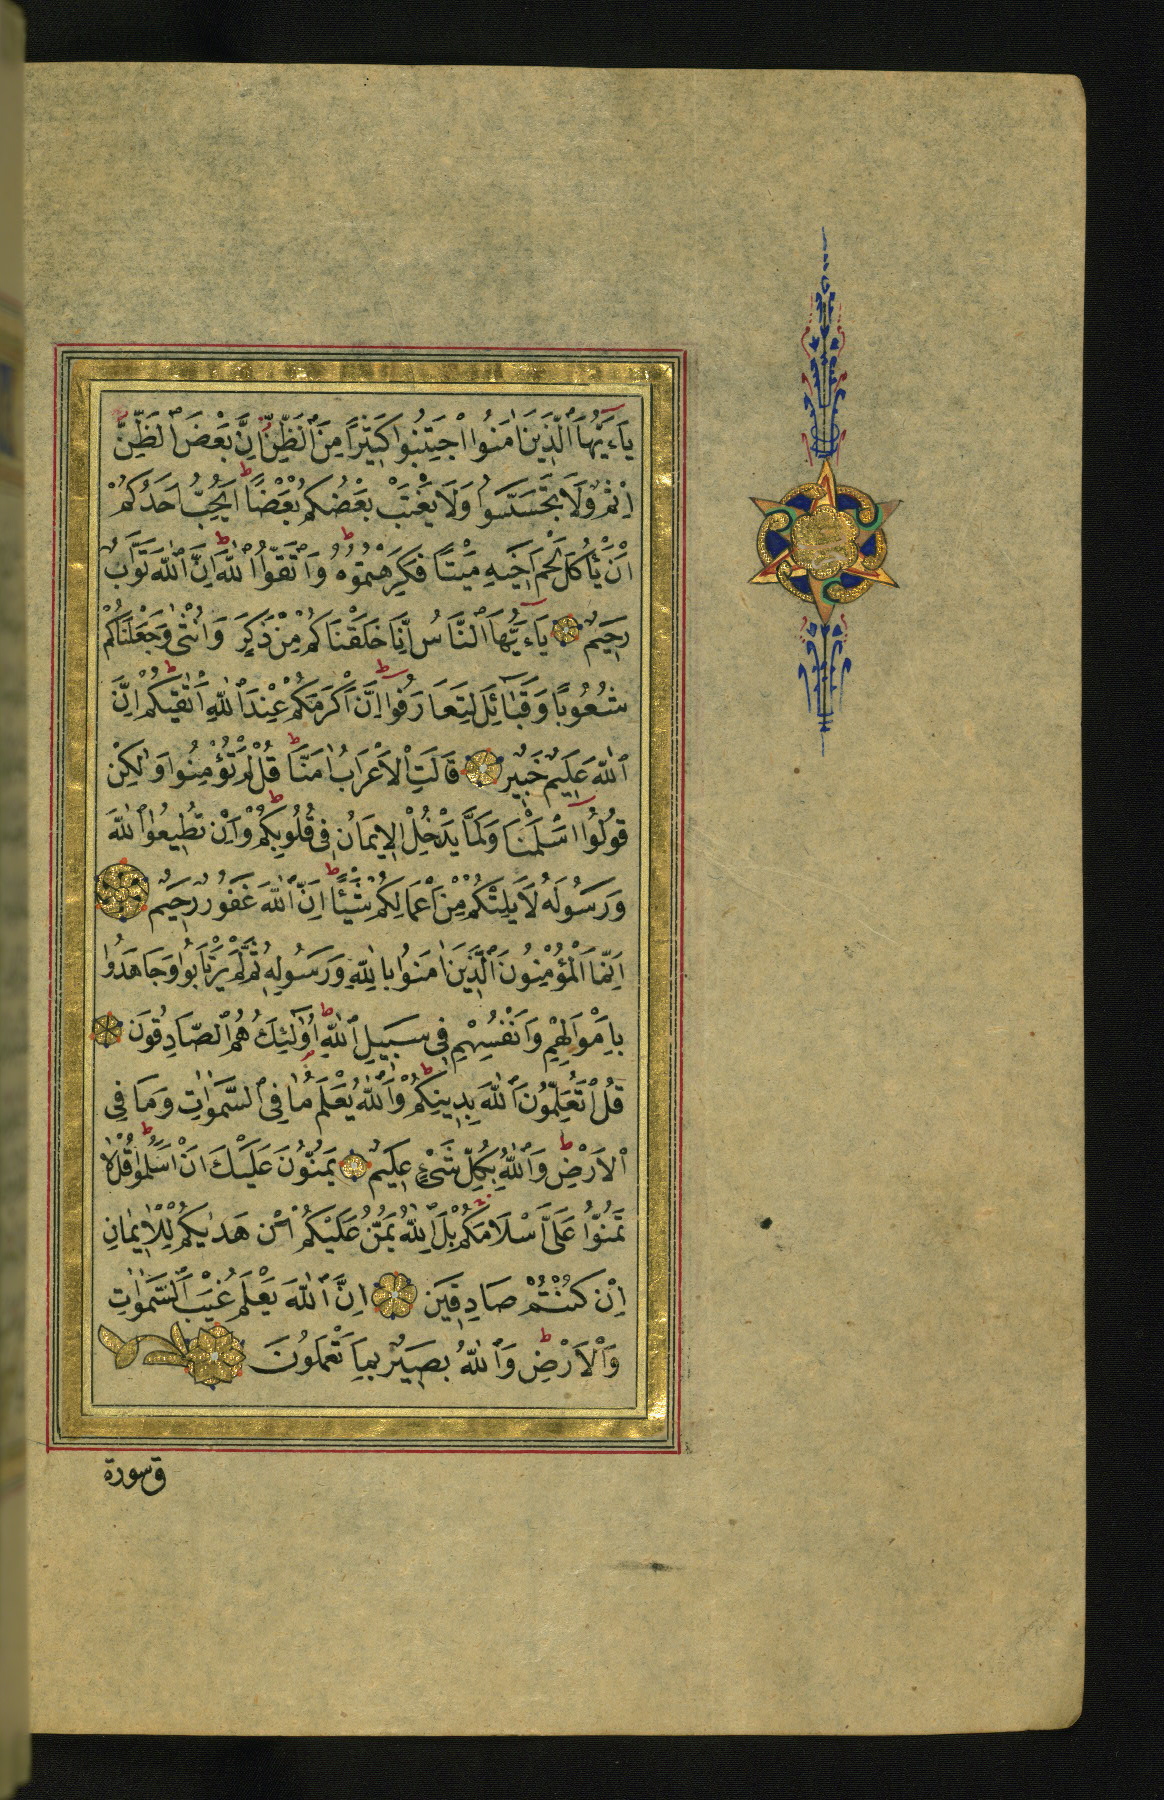 يَاءَيُّهَا ٱلَّذِينَ اٰمَنُوا اجْتَنِبُوا كَثِيرًا مِنَ ٱلظَّنِّ اِنَّ بَعْضَ ٱلظَّنِّ
اِثْمٌ وَلَا تَجَسَّسُوا وَلَا يَغْتَبْ بَعْضُكُمْ بَعْضًا اَيُحِبُّ اَحَدُكُمْ
اَنْ يَأْكُلَ لَحْمَ اَخِيهِ مَيْتًا فَكَرِهْتُمُوهُ وَٱتَّقُوا ٱللّٰهَ اِنَّ ٱللّٰهَ تَوَّابٌ
رَحِيمٌ يَاءَيُّهَا ٱلنَّاسُ اِنَّا خَلَقْنَاكُمْ مِنْ ذَكَرٍ وَاُنْثٰى وَجَعَلْنَاكُمْ
شُعُوبًا وَقَبَائِلَ لِتَعَارَفُوا اِنَّ اَكْرَمَكُمْ عِنْدَ ٱللّٰهِ اَتْقٰيكُمْ اِنَّ
ٱللّٰهَ عَلِيمٌ خَبِيرٌ قَالَتِ ٱلْاَعْرَابُ اٰمَنَّا قُلْ لَمْ تُؤْمِنُوا وَلٰكِنْ
قُولُوا اَسْلَمْنَا وَلَمَّا يَدْخُلِ ٱلْاِيمَانُ فِى قُلُوبِكُمْ وَاِنْ تُطِيعُوا ٱللّٰهَ
وَرَسُولَهُ لَا يَلِتْكُمْ مِنْ اَعْمَالِكُمْ شَيْئًا اِنَّ ٱللّٰهَ غَفُورٌ رَحِيمٌ
اِنَّمَا ٱلْمُؤْمِنُونَ ٱلَّذِينَ اٰمَنُوا بِاللّٰهِ وَرَسُولِهِ ثُمَّ لَمْ يَرْتَابُوا وَجَاهَدُوا
بِاَمْوَالِهِمْ وَاَنْفُسِهِمْ فِى سَبِيلِ ٱللّٰهِ اُولٰئِكَ هُمُ ٱلصَّادِقُونَ
قُلْ اَتُعَلِّمُونَ ٱللّٰهَ بِدِينِكُمْ وَٱللّٰهُ يَعْلَمُ مَا فِى ٱلسَّمٰوَاتِ وَمَا فِى
ٱلْاَرْضِ وَٱللّٰهُ بِكُلِّ شَىْءٍ عَلِيمٌ يَمُنُّونَ عَلَيْكَ اَنْ اَسْلَمُوا قُلْ لَا
تَمُنُّوا عَلَىَّ اِسْلَامَكُمْ بَلِ ٱللّٰهُ يَمُنُّ عَلَيْكُمْ اَنْ هَدٰيكُمْ لِلْاِيمَانِ
اِنْ كُنْتُمْ صَادِقِينَ اِنَّ ٱللّٰهَ يَعْلَمُ غَيْبَ ٱلسَّمٰوَاتِ
وَٱلْاَرْضِ وَٱللّٰهُ بَصِيرٌ بِمَا تَعْمَلُونَ
ق سورة